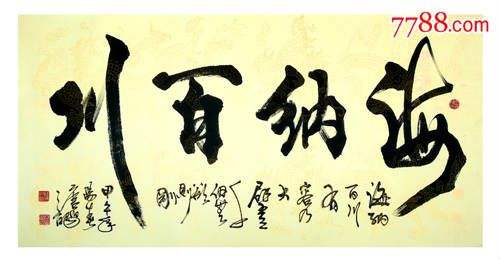 7788.com
海纳百川
海纳
百川
有
容乃
大
壁立
千
仞無欲
則
剛
甲午年